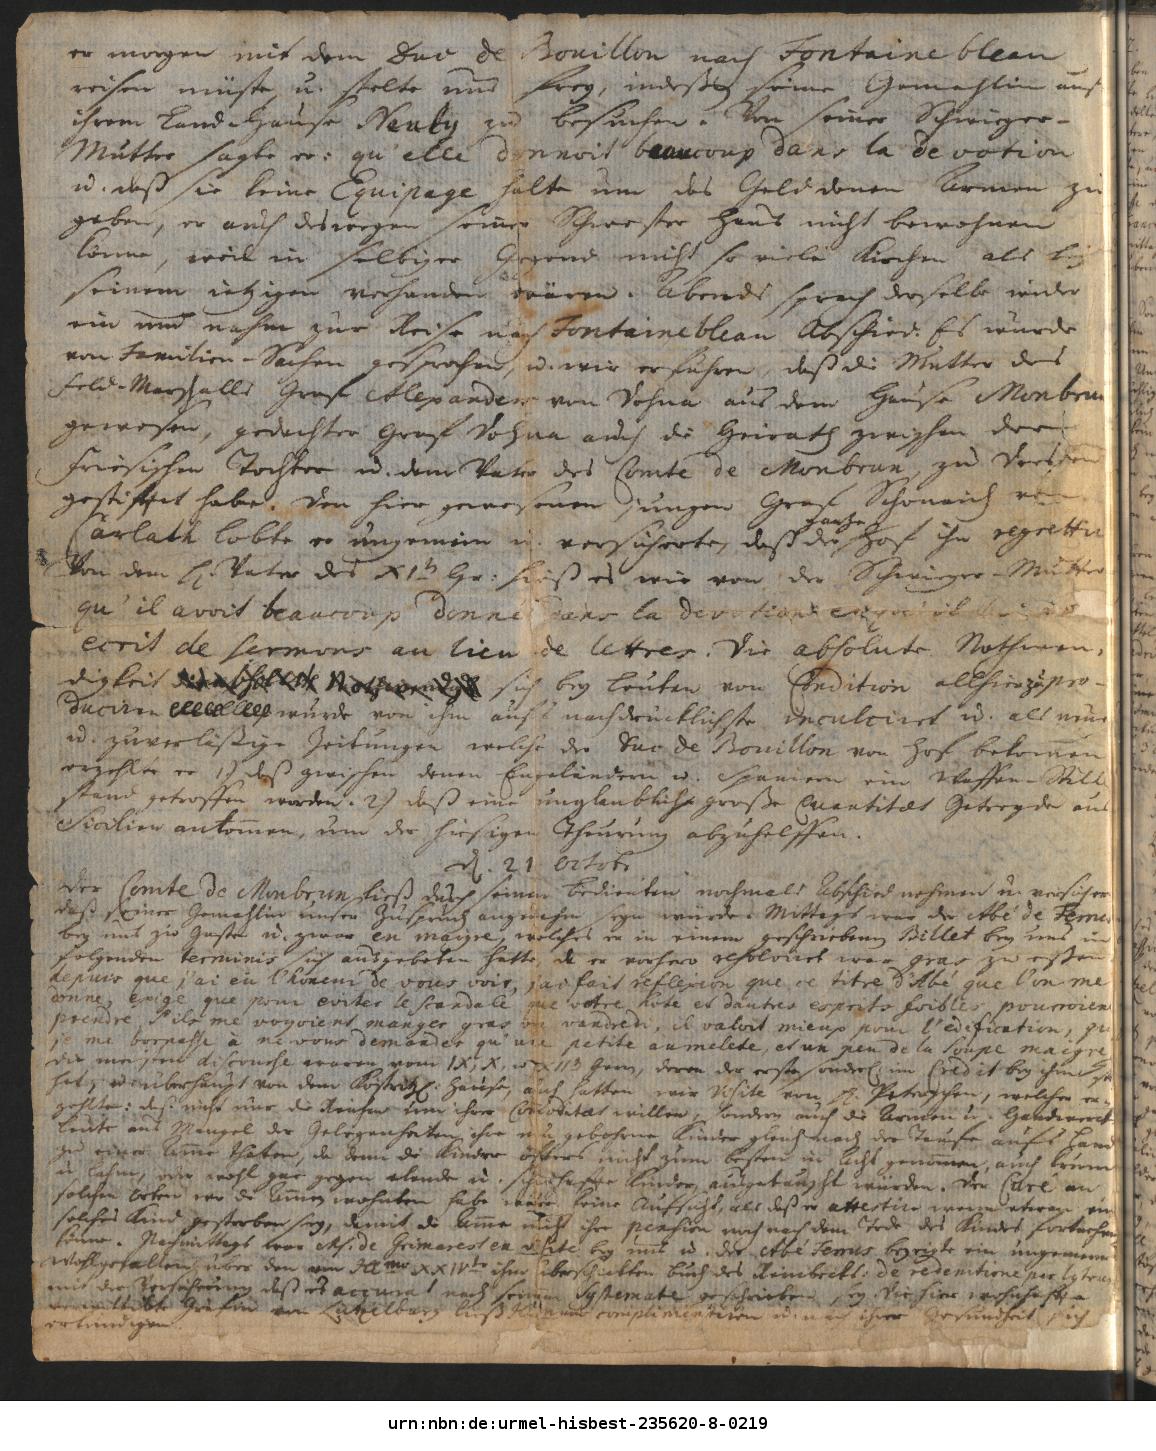 er morgen mit dem Duc de Bouillon nach Fontainebleau
reisen müste, u. stelte uns frey, indeßen seine Gemahlin auf
ihrem Land-Hause Neuly zu besuchen. Von seiner Schwieger-
Mutter sagte er: qu'elle donnoit beaucoup dans la devotion
u. daß sie keine Equipage halte um das Geld denen Armen zu
geben, er auch deswegen seiner Schwester Haus nicht bewohnen
könne, weil in selbiger Gegend nicht so viele Kirchen als bey
seinem ietzigen vorhanden wären. Abends sprach derselbe wider
ein und nahm zur Reise nach Fontainebleau Abschied. Es wurde
von Familien-Sachen gesprochen, u. wir erfuhren, daß die Mutter des
Feld-Marschalls Graf Alexanders von Dohna aus dem Hause Monbrun
gewesen, gedachter Graf Dohna auch die Heirath zwischen der
Friesischen Tochter u. dem Vater des Comte de Monbrun, zu Dresden
gestifftet habe. Den hier gewesenen jungen Graf Schönaich von
Carlath lobte er ungemein u. versicherte, daß der gantze Hof ihn regrettire
Von dem H. Vater des XI.th Gr: hieß es wie von der Schwieger-Mutter
qu'il avoit beaucoup donné dans la devotion
ecrit de sermons au lieu de lettres. Die absolute Nothwen-
digkeit sich bey Leuten von Condition allhier zu pro-
duciren wurde von ihm aufs nachdrücklichste inculciret u. als neue
u. zuverläßige Zeitungen welche der Duc de Bouillon von Hof bekommen
erzehlte er 1) daß zwischen denen Engeländern u. Spaniern ein Waffen-Still
stand getroffen worden. 2) daß eine unglaublich große Quantitæt Getreyde aus
Sicilien ankommen, um der hiesigen Theurung abzuhelffen.
d. 21 Octobr
Der Comte de Monbrun ließ durch seinen Bedienten nochmals Abschied nehmen u. versichern
daß seiner Gemahlin unser Zuspruch angenehm seyn würde. Mittags war der Abé de Ternes
bey uns zu Gaste u. zwar en maigre, welches er in einem geschriebenen Billet bey uns in
folgenden terminis sich ausgebeten hatte, da er vorhero resolviret war gras zu eßen
depuis que j'ai eu l'honeur de vous voir, j'ai fait reflexion que ce titre d'Abé que l'on me
donne, exige que pour eviter le scandale que votre hote et d'autres esprits foibles pourroient
prendre, s'ils me voyoient manger gras un vandredi, il valoit mieux pour l'edification, que
je me bornasse à ne vous demander qu'une petite aumelete, et un peu de la soupe maigre
die meisten discourse waren vom IX, X, u. XIIth Gen, deren der erste sonderl. im Credit bey ihm
hat, u. überhaupt von dem Köstritz. Hause, auch hatten wir Visite von H. Petersschen, welcher er-
zehlte: daß nicht nur die Reichen um ihrer Comoditæt willen, sondern auch die Armen u. Handwercks
leute aus Mangel der Gelegenheiten ihre neu gebohrne Kinder gleich nach der Taufe aufs Land
zu einer Amme thäten, da denn die Kinder öfters nicht zum besten in Acht genommen, auch krum
u. lahm, oder wohl gar gegen elende u. schadhaffte Kinder, ausgetauscht würden. Der Curé an
solchen Orten wo die Ammen wohnten habe weiter keine Aufsicht, als daß er attestire wenn etwan ein
solches Kind gestorben sey, damit die Amme nicht ihre pension noch nach dem Tode des Kindes fortziehen
könne. Nachmittags war Ms. de Grimarest en visite bey uns u. der Abé Ternes bezeigte ein ungemeines
Wohlgefallen über den XXIVte ihm überschickten Buch des Reinbecks: de redemtione per lytrum
mit der Versicherung daß es accurat nach seinem Systemate geschrieben sey. Die hier wohnhafte
verwittibte Gräfin von Lützelburg ließ complimentiren u. nach ihrer Gesundheit sich
erkundigen.
urn:nbn:de:urmel-hisbest-235620-8-0219